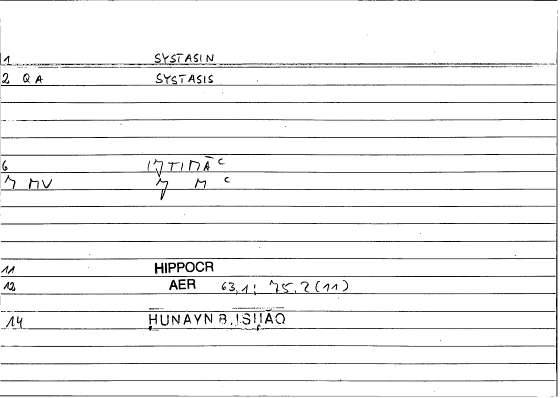 1 SYSTASIN
2 Q A SYSTASIS
6 IǦTIMĀʿ
Ǧ MV Ǧ M ʿ
11 HIPPOCR
12 AER 63,1; 75,2(11)
14 ḤUNAYN B. ISḤĀQ